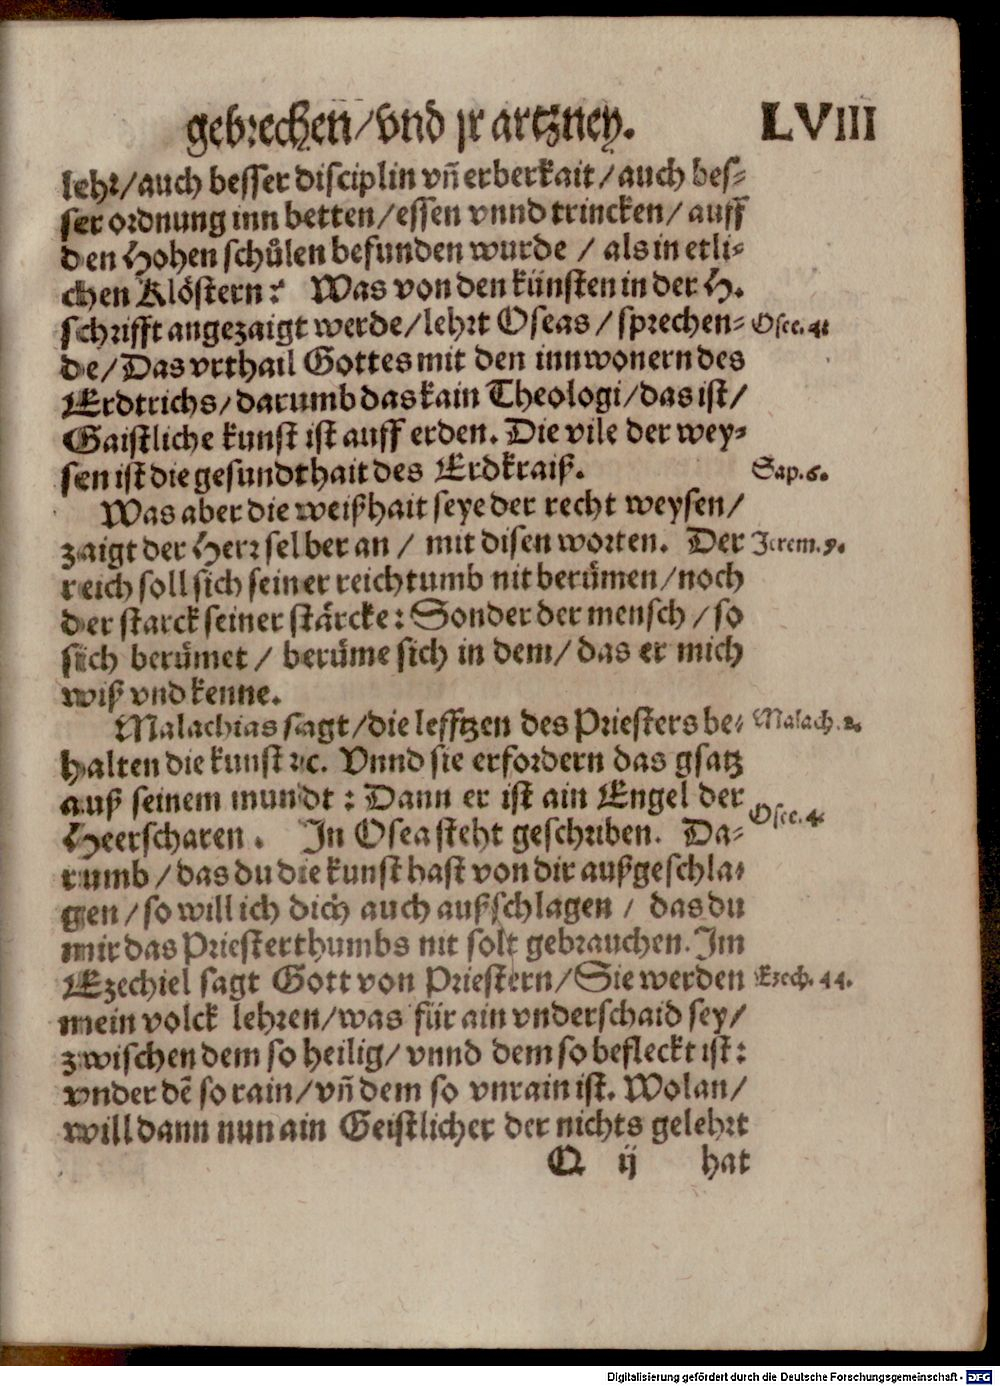 gebrechen/vnd jr artzney. LVIII
lehr/auch besser disciplin vñ erberkait/auch bes-
ser ordnung inn betten/essen vnnd trincken/auff
den Hohen schůlen befunden wurde / als in etli-
chen Klöstern: Was von den künsten in der H.
schrifft angezaigt werde/lehrt Oseas/sprechen- Osee. 4.
de/Das vrthail Gottes mit den innwonern des
Erdtrichs/darumb das kain Theologi/das ist/
Gaistliche kunst ist auff erden. Die vile der wey-
sen ist die gesundthait des Erdkraiß. Sap. 6.
Was aber die weißhait seye der recht weysen/
zaigt der Herr selber an / mit disen worten. Der Jerem. 9.
reich soll sich seiner reichtumb nit berümen/noch
der starck seiner stärcke: Sonder der mensch/so
sich berümet / berüme sich in dem/das er mich
wiß vnd kenne.
Malachias sagt/die lefftzen des Priesters be- Malach. 2.
halten die kunst ꝛc. Vnnd sie erfordern das gsatz
auß seinem mundt: Dann er ist ain Engel der
Heerscharen. In Osea steht geschriben. Da- Osee. 4.
rumb/das du die kunst hast von dir außgeschla-
gen/so will ich dich auch außschlagen / das du
mir das Priesterthumbs nit solt gebrauchen. Im
Ezechiel sagt Gott von Priestern/Sie werden Ezech. 44.
mein volck lehren/was für ain vnderschaid sey/
zwischen dem so heilig/vnnd dem so befleckt ist:
vnder dẽ so rain/vñ dem so vnrain ist. Wolan/
will dann nun ain Geistlicher der nichts gelehrt
Q ij hat
Digitalisierung gefördert durch die Deutsche Forschungsgemeinschaft - DFG